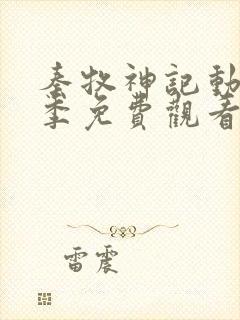 秦牧神記動
季免費觀看
雷震